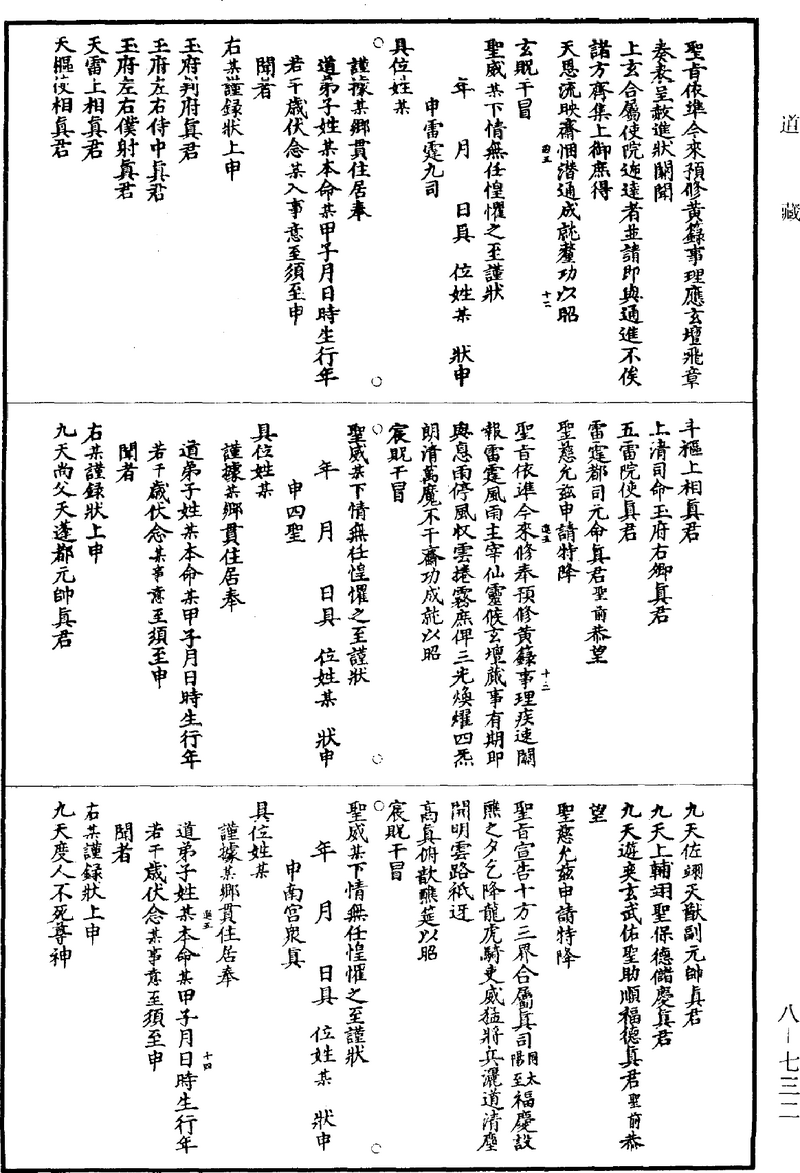 道藏
聖旨依準今來預修黃籙事理應玄壇飛章
奏表呈敷進狀關聞
上玄合屬使院遞達者並請即與通進不俟
諸方齊集上御庶得
天恩流映齋悃潛通成就鏊功以昭
玄貺干冒
聖威某下情無任惶懼之至謹狀
年 月 日具 位姓某 狀申
申雷霆九司
具位姓某
謹據某鄉貫住居奉
道弟子姓某本命某甲子月日時生行年
若干歲伏念某入事意至須至申
聞者
右某謹録狀上申
玉府判府真君
玉府左右侍中真君
玉府左右僕射真君
天雷上相真君
天樞使相真君
斗樞上相真君
上清司命玉府右卿真君
五雷院使真君
雷霆都司元命真君聖前恭望
聖慈允兹申請特降
聖旨依準今來修奉預修黃籙事理疾速關
報雷霆風雨主宰仙靈候玄壇蕆事有期即
與息雨停風收雲捲霧庶俾三光煥燿四炁
朗清萬魔不干齋功成就以昭
宸貺干冒
聖威某下情無任惶懼之至謹狀
年 月 日具 位姓某 狀申
申四聖
具位姓某
謹據某鄉貫住居奉
道弟子姓某本命某甲子月日時生行年
若干歲伏念某事意至須至申
聞者
右某謹録狀上申
九天尚父天蓬都元帥真君
九天佐翊天猷副元帥真君
九天上輔翊聖保德儲慶真君
九天遊奕玄武佑聖助順福德真君聖前恭
望
聖慈允兹申請特降
聖旨宣告十方三界合屬真司同太陽至福慶設
醮之夕乞降龍虎騎吏威猛將兵灑道清塵
開明雲路祇迓
高真俯歆醮筵以昭
宸貺干冒
聖威某下情無任惶懼之至謹狀
年 月 日具 位姓某 狀申
申南宮衆真
具位姓某
謹據某鄉貫住居奉
道弟子姓某本命某甲子月日時生行年
若干歲伏念某事意至須至申
聞者
右某謹録狀上申
九天度人不死尊神
八-七三二